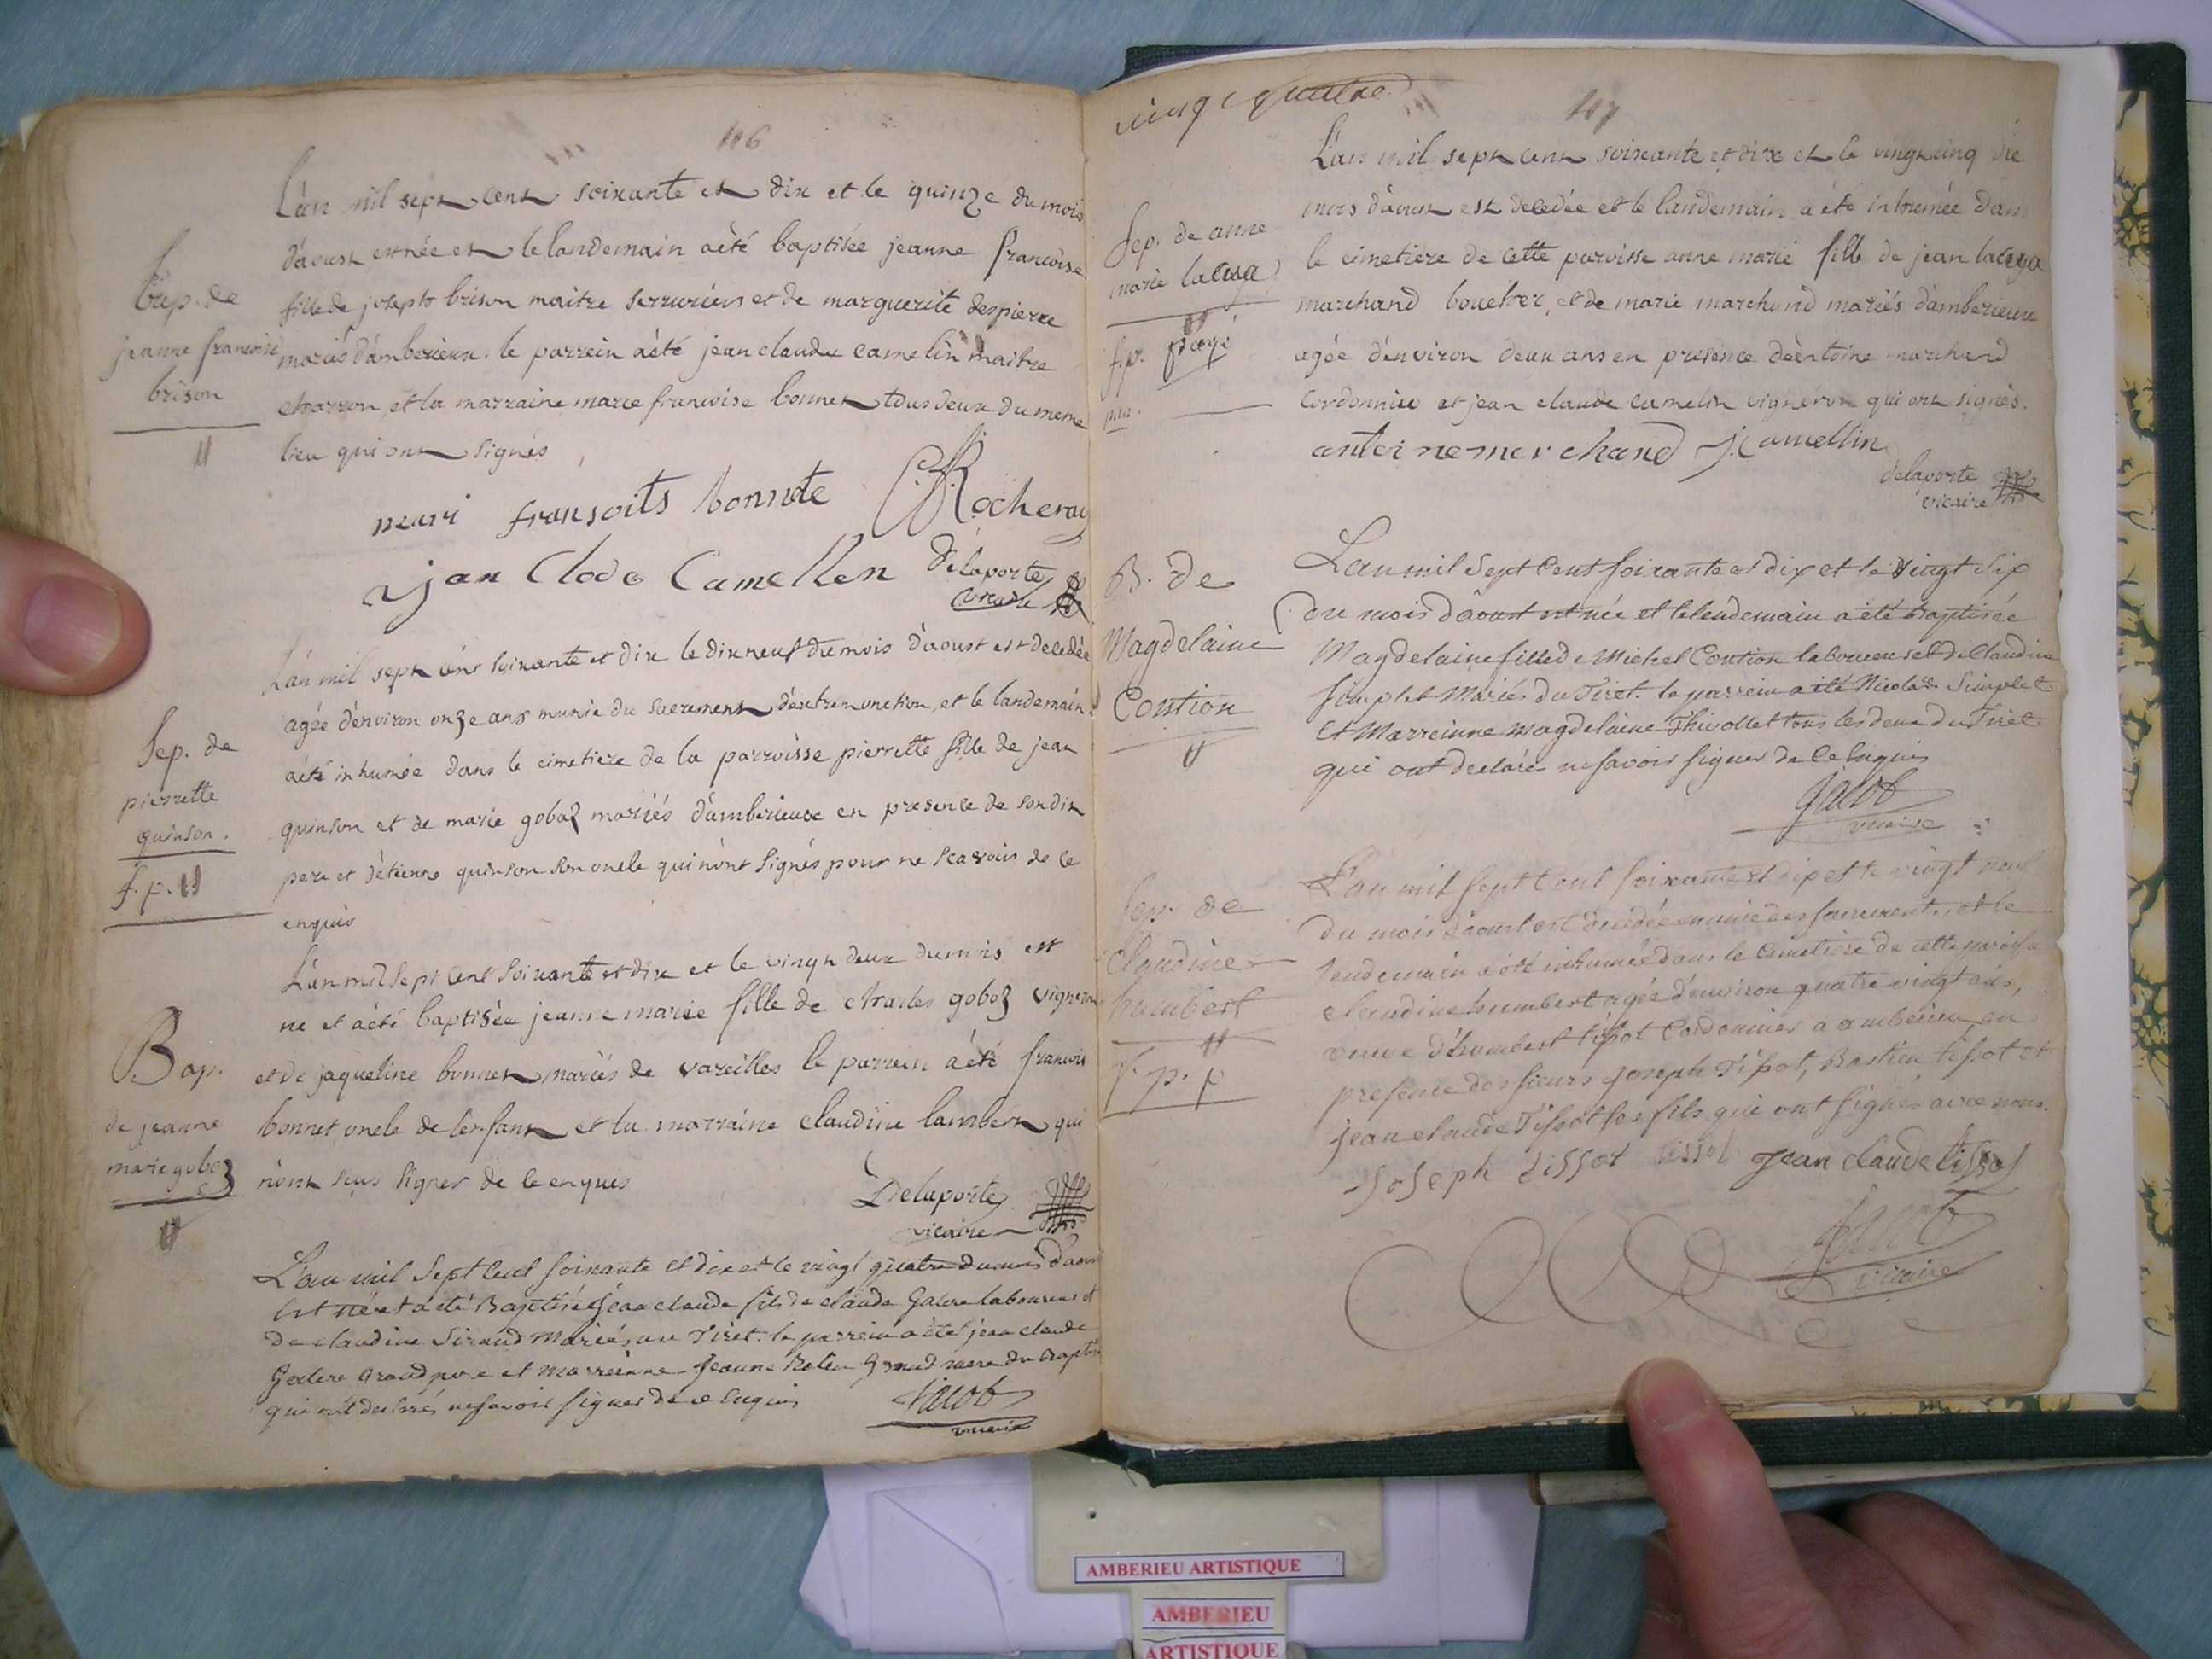 116
L'an mil sept cent soixante et dix et le quinze du mois
d'aoust est née et le landemain a été baptisée jeanne francoise
fille de joseph brison maitre serrurier et de marguerite despierre
mariés d'amberieux. le parrein a été jean claude camelin maitre
charron et la marraine marie francoise bonnet tous deux du meme
lieu qui ont signés
bap. de
jeanne francoise
brison
meari fransoits bonnote Rocheray
jan Clode Camellen Delaporte
vicaire
L'an mil sept cent soixante et dix le dix neuf du mois d'aoust est decedée
agée d'environ onze ans munie du sacrement d'extremonction, et le landemain
a été inhumée dans le cimetiere de la parroisse pierrette fille de jean
quinson et de marie goboz mariés d'amberieux en presence de son dit
pere et d'etienne quinson son oncle qui n'ont signés pour ne scavoir de ce
enquis
Sep. de
pierrette
quinson.
f. p.
L'an mil sept cent soixante et dix et le vingt deux du mois est
ne et a été baptisée jeanne marie fille de charles goboz vigneron
et de jaqueline bonnet mariés de vareilles le parrein a été francois
bonnet oncle de l'enfant et la marraine claudine lambert qui
n'ont sçus signer de ce enquis
Bap.
de jeanne
marie goboz
Delaporte
vicaire
L'an mil Sept Cent soixante et dix et le vingt quatre du mois d'aoust
Est né et a été Baptisé Jean claude fils de claude Galere laboureur et
de claudine Siraud Mariés au Tiret. le parrein a été jean claude
Galere Grandpere et Marreinne Jeanne Grand mere du Baptisé
qui ont declarés ne savoir signer de ce Enquis
Jacob
vicaire
107
L'an mil sept cent soixante et dix et le vingt cinq du
mois d'aoust est decedée et le landemain a été inhumée dans
le cimetiere de cette paroisse anne marie fille de jean
marchand boucher, et de marie marchand mariés d'amberieux
agée d'environ deux ans en presence d'antoine marchand
cordonnier et jean claude camelin vigneron qui ont signés.
Sep. de anne
marie
f. p. payé
antoi ne mer chand J. Camellin
delaporte
vicaire
L'an mil Sept Cent soixante et dix et le vingt Six
du mois d'aoust est née et le lendemain a été Baptisée
Magdelaine fille de Michel Contion laboureur et de Claudine
Simplet Mariés du Tiret. le parrein a été Nicolas Simplet
et Marreinne Magdelaine Thivollet tous les deux du Tiret
qui ont declarés ne savoir signer de ce Enquis
B. de
Magdelaine
Contion
Jacob
vicaire
L'an mil Sept Cent soixante et dix et le vingt neuf
du mois d'aoust est decedée munie des sacrements, et le
lendemain a été inhumée dans le Cimetiere de cette paroisse
claudine humbert agée d'environ quatre vingt ans,
veuve d'humbert tissot Cordonnier a amberieu, en
presence des sieurs joseph Tissot, Bastien tissot et
jean claude Tissot ses fils qui ont signés avec nous.
Sep. de
Claudine
humbert
f. p. p
Joseph tissot tissot Jean claude tissot
Jacob
vicaire
AMBERIEU ARTISTIQUE
AMBERIEU
ARTISTIQUE